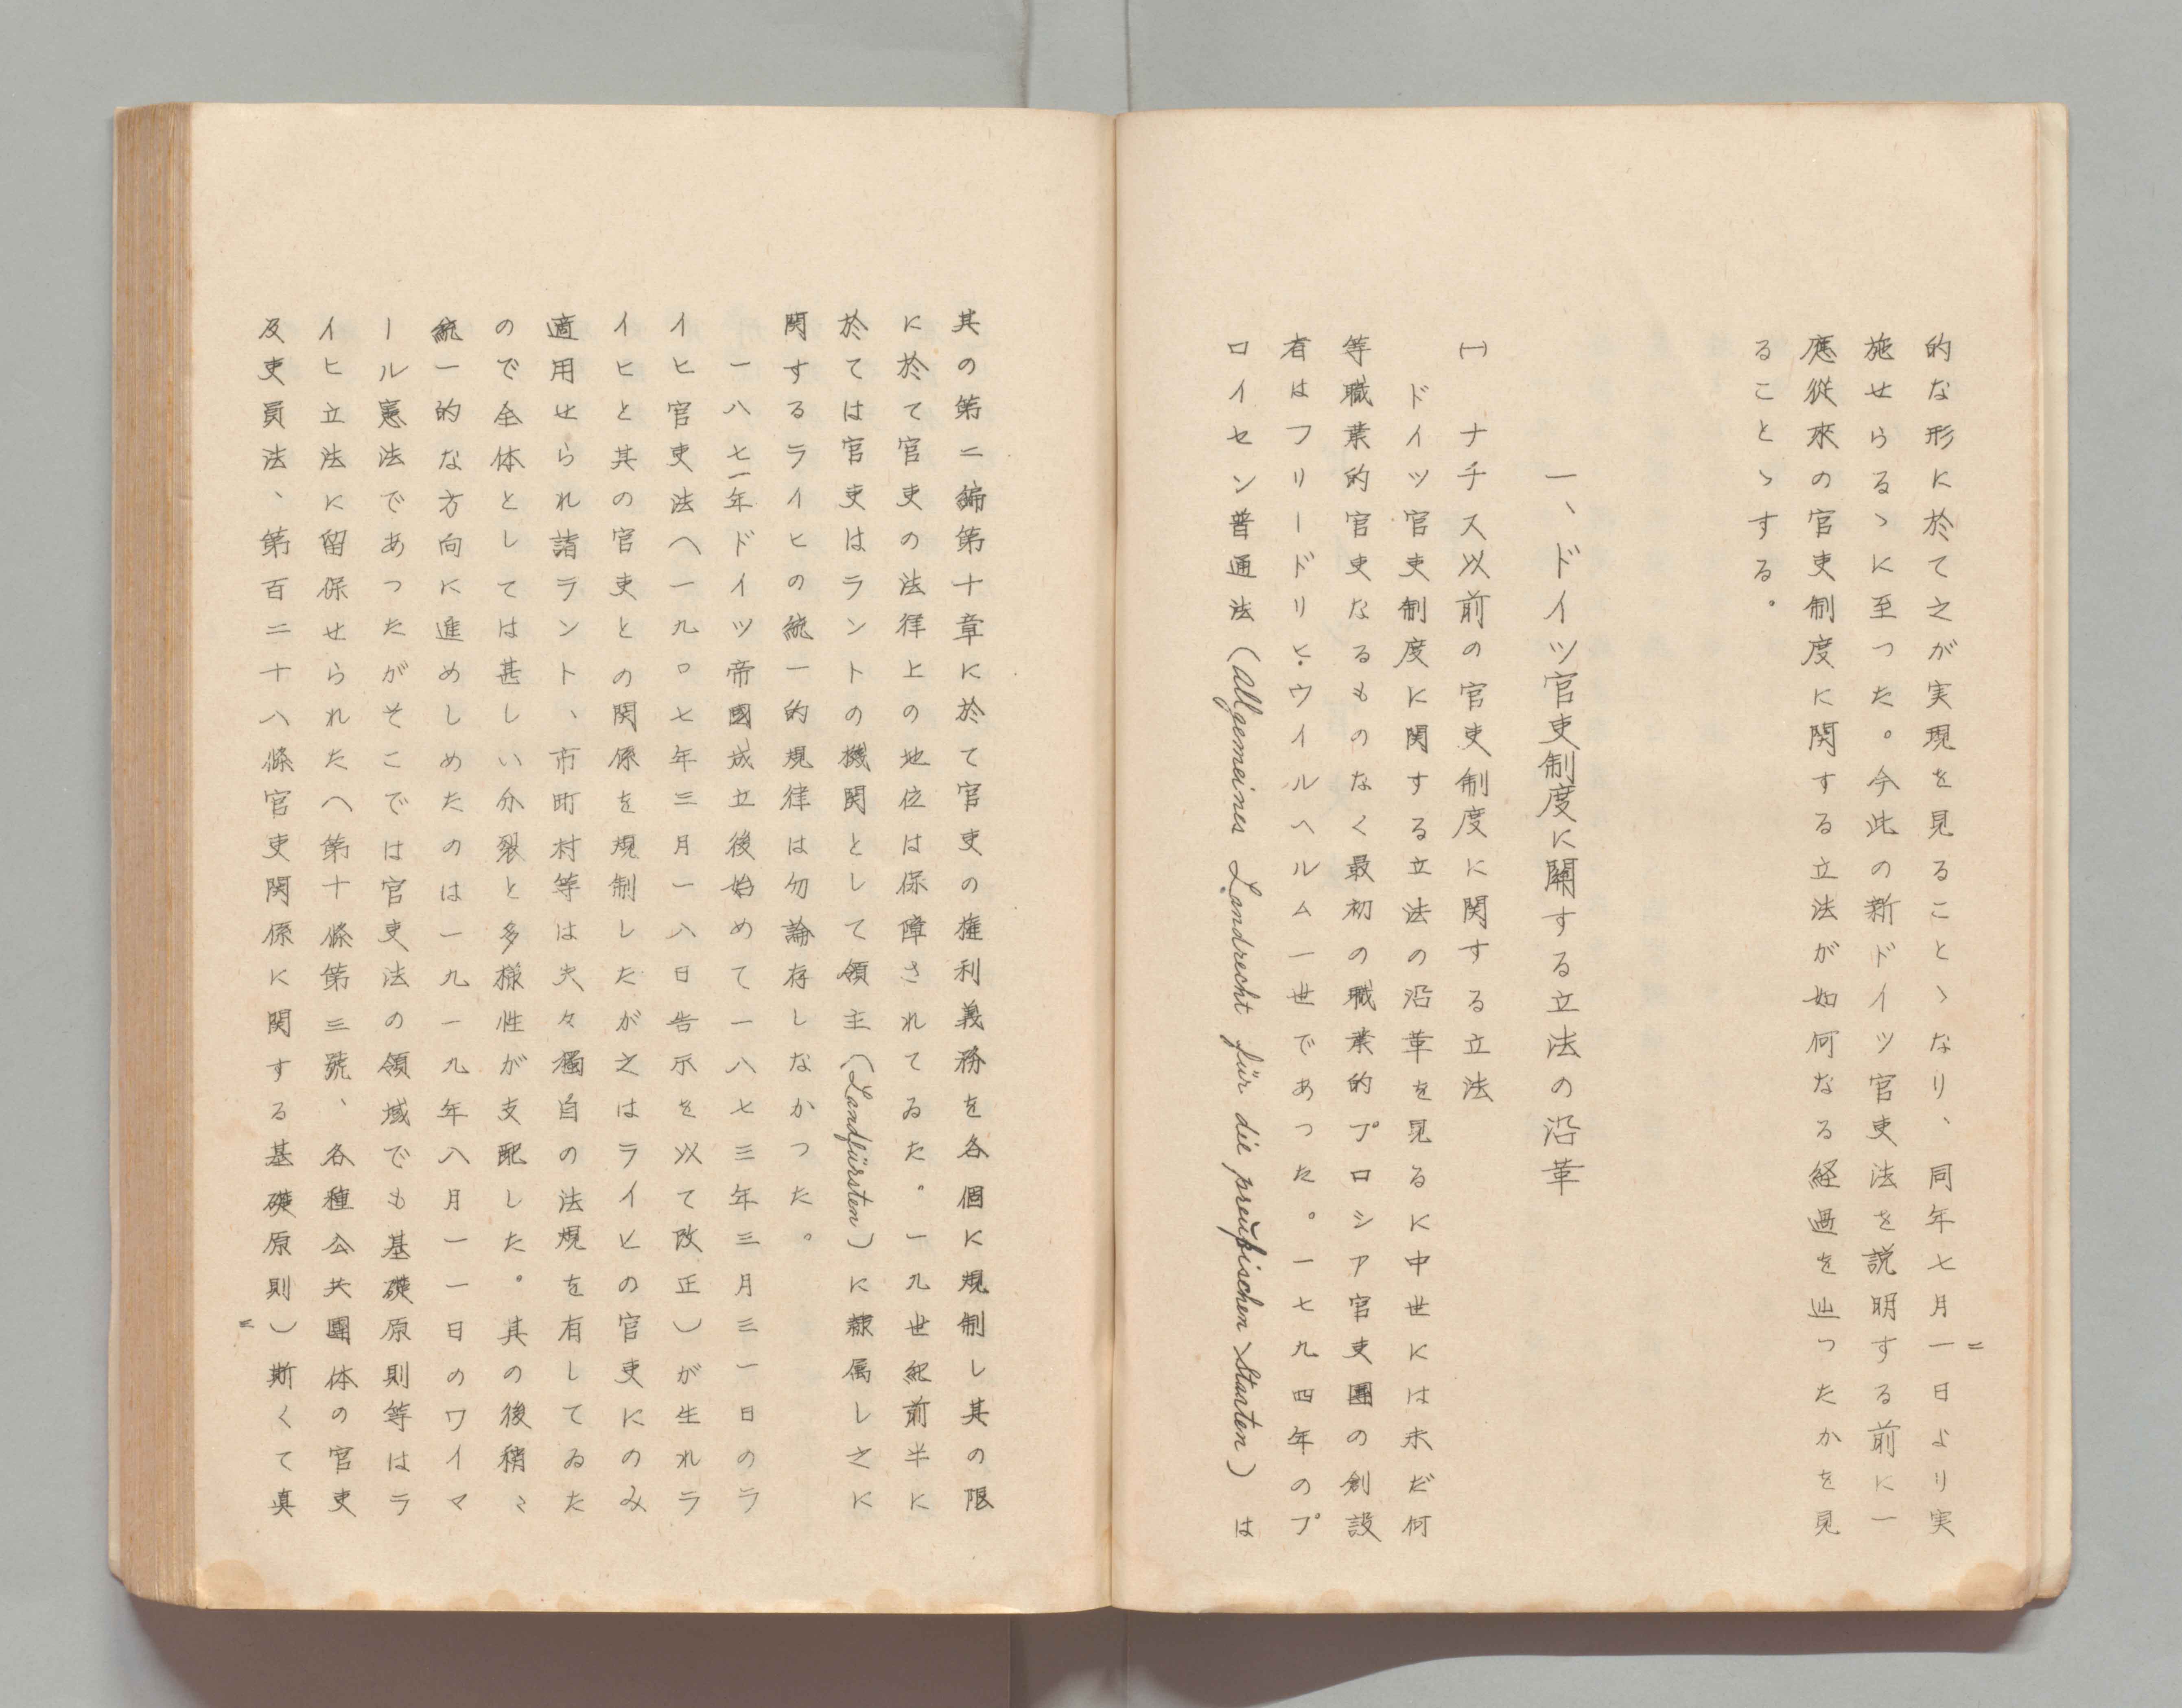 的な形に於て之が実現を見ることゝなり、同年七月一日より実
施せらるゝに至つた。今此の新ドイツ官吏法を説明する前に一
應従來の官吏制度に関する立法が如何なる経過を辿つたかを見
ることゝする。
一、ドイツ官吏制度に關する立法の沿革
㈠ ナチス以前の官吏制度に関する立法
ドイツ官吏制度に関する立法の沿革を見るに中世には未だ何
等職業的官吏なるものなく最初の職業的プロシア官吏團の創設
者はフリードリヒ・ウイルヘルム一世であつた。一七九四年のプ
ロイセン普通法(Allgemeines Landrecht für die preußischen Staaten)は
二
其の第二編第十章に於て官吏の権利義務を各個に規制し其の限
に於て官吏の法律上の地位は保障されてゐた。一九世紀前半に
於ては官吏はラントの機関として領主(Landfürsten)に隷属し之に
関するライヒの統一的規律は勿論存しなかつた。
一八七一年ドイツ帝國成立後始めて一八七三年三月三一日のラ
イヒ官吏法(一九〇七年三月一八日告示を以て改正)が生れラ
イヒと其の官吏との関係を規制したが之はライヒの官吏にのみ
適用せられ諸ラント、市町村等は夫々獨自の法規を有してゐた
ので全体としては甚しい分裂と多様性が支配した。其の後稍々
統一的な方向に進めしめたのは一九一九年八月一一日のワイマ
ール憲法であつたがそこでは官吏法の領域でも基礎原則等はラ
イヒ立法に留保せられた(第十條第三號、各種公共團体の官吏
及吏員法、第百二十八條官吏関係に関する基礎原則)斯くて真
三